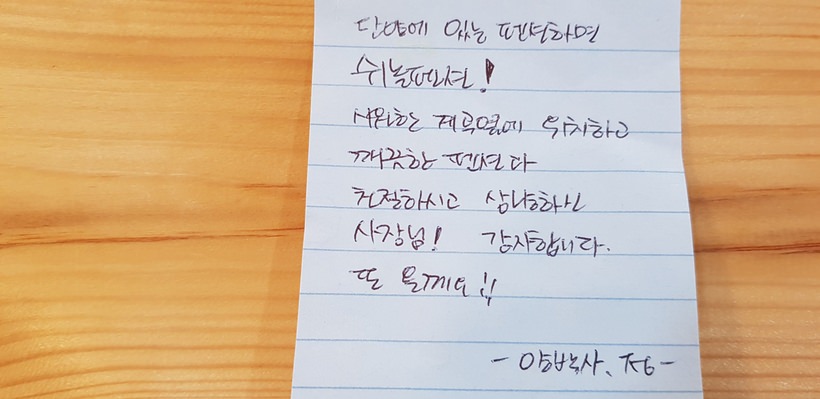 단양에 있는 펜션하면
쉬놀펜션!
시원한 계곡옆에 위치하고
깨끗한 펜션다
친절하시고 상냥하신
사장님! 감사합니다.
또 올께요!!